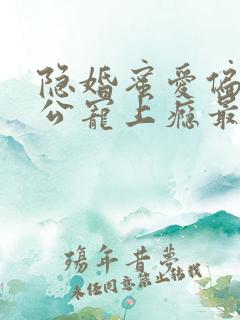 隐婚蜜爱偏
公宠上瘾最
殇年昔梦
未经同意禁止转载